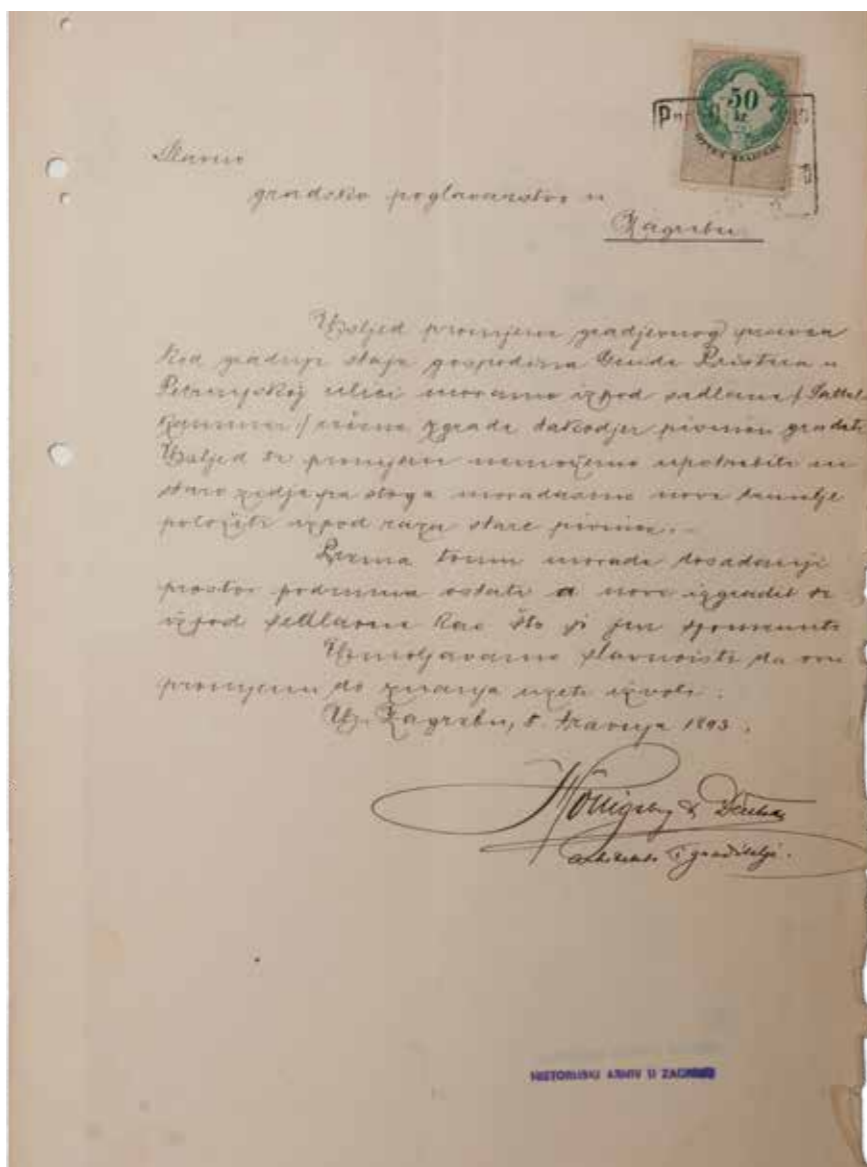 50
kr.
Slavno
gradsko poglavarstvo u
Zagrebu
Uzsljed promjene gradjevnog pravca
kod gradnje staja gospodina Gvide Pristera u
Petrinjskoj ulici moramo izpod sedlarne / Sattel
kammer / zgrade takodjer pivnicu graditi
Uzsljed te promjene nemožemo upotrebiti
staro zidje pa stoga moradosmo nove temelje
položiti izpod stare pivnice.
Prema tomu morade dosadanji
prostor podruma ostati a novi izgradit se
izpod sedlarne kao što je jur spomenuto
Umoljavamo slavnoisti da ovu
promjenu do znanja uzeti izvoli.
U Zagrebu, 8. travnja 1893.
Hönigsberg & Deutsch
arhitekti i graditelji.
HISTORIJSKI ARHIV U ZAGREBU